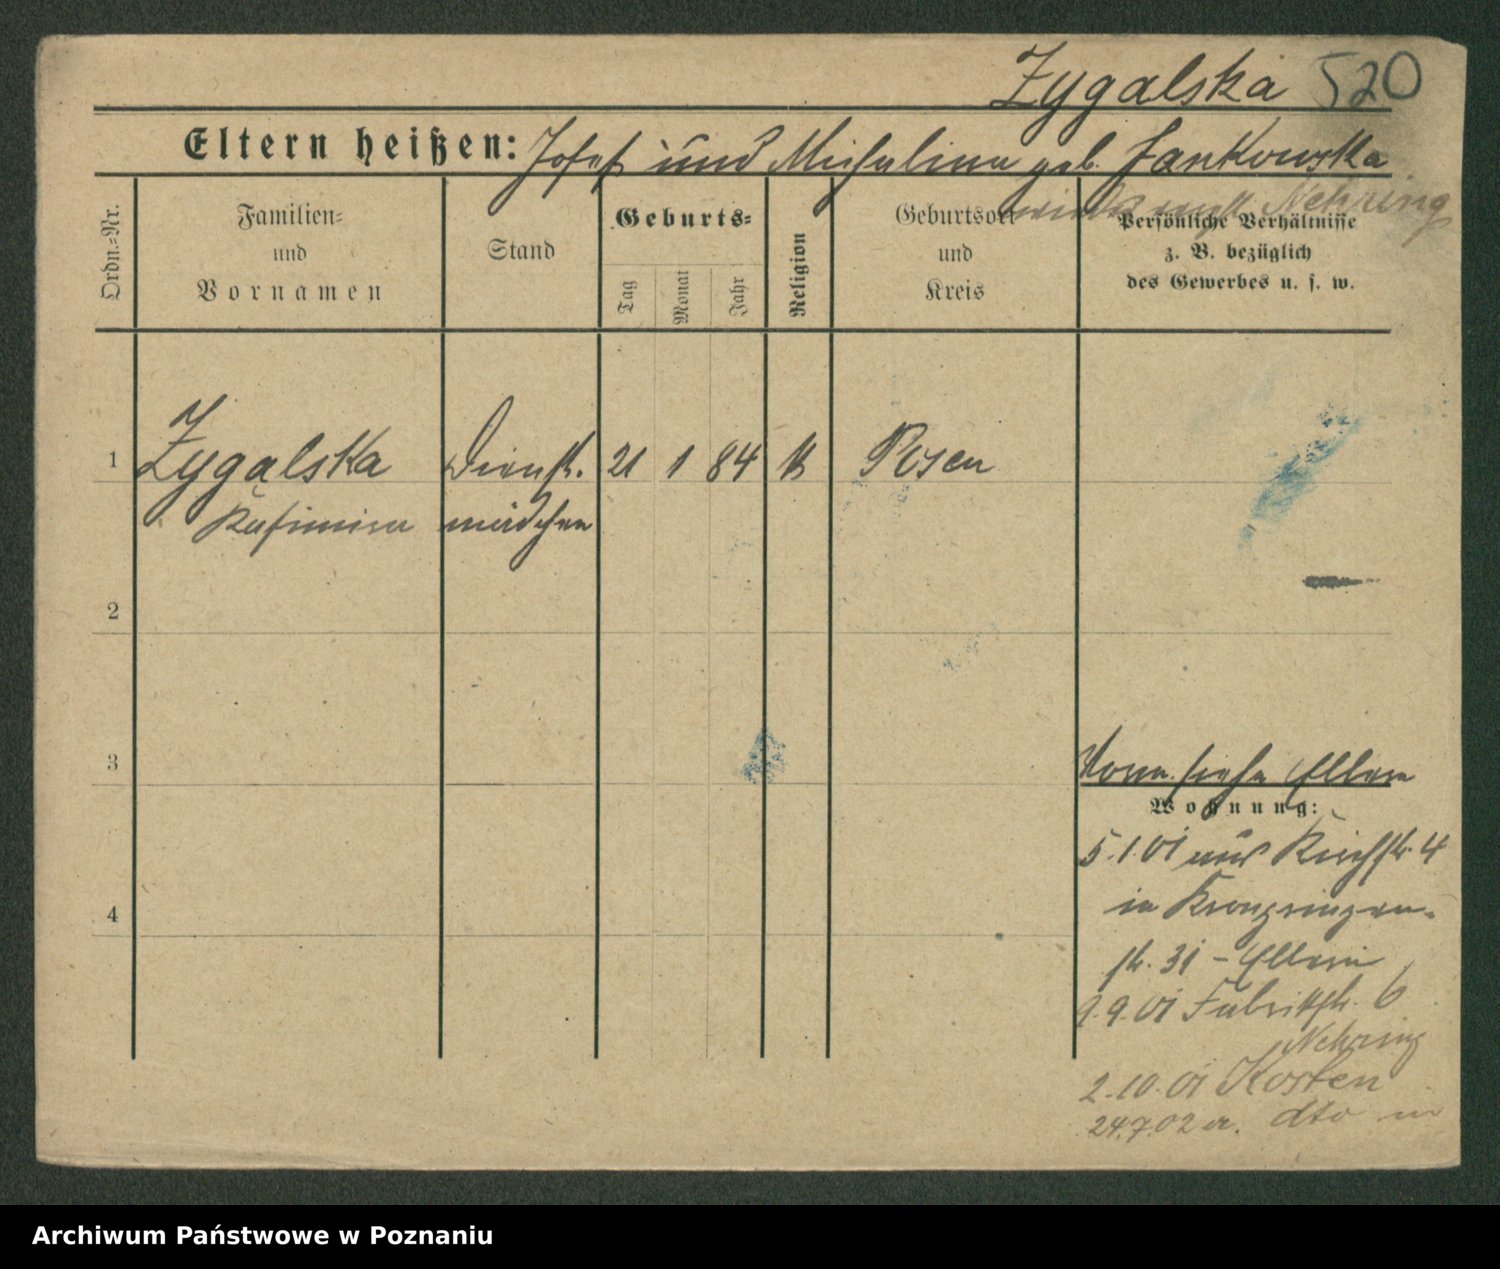 Zygalska 520
Eltern heißen: Josef und Michalina geb. Jankowska
Nehring
Ordn.=Nr.
Familien=
und
Vornamen
Stand
Geburts=
Tag
Monat
Jahr
Religion
Geburtsort
und
Kreis
Persönliche Verhältnisse
z. B. bezüglich
des Gewerbes u. s. w.
1 Zygalska Dienst. 21 1 84 k Posen
Kasimira mädchen
2
3
Vorn. siehe Eltern
Wohnung:
5.1.01 aus Kirchstr. 4
in Kronprinzen-
4
str. 31 - Eltern
9.9.01 Fabrikstr. 6
Nehring
2.10.01 Kosten
24.7.02 dto
Archiwum Państwowe w Poznaniu